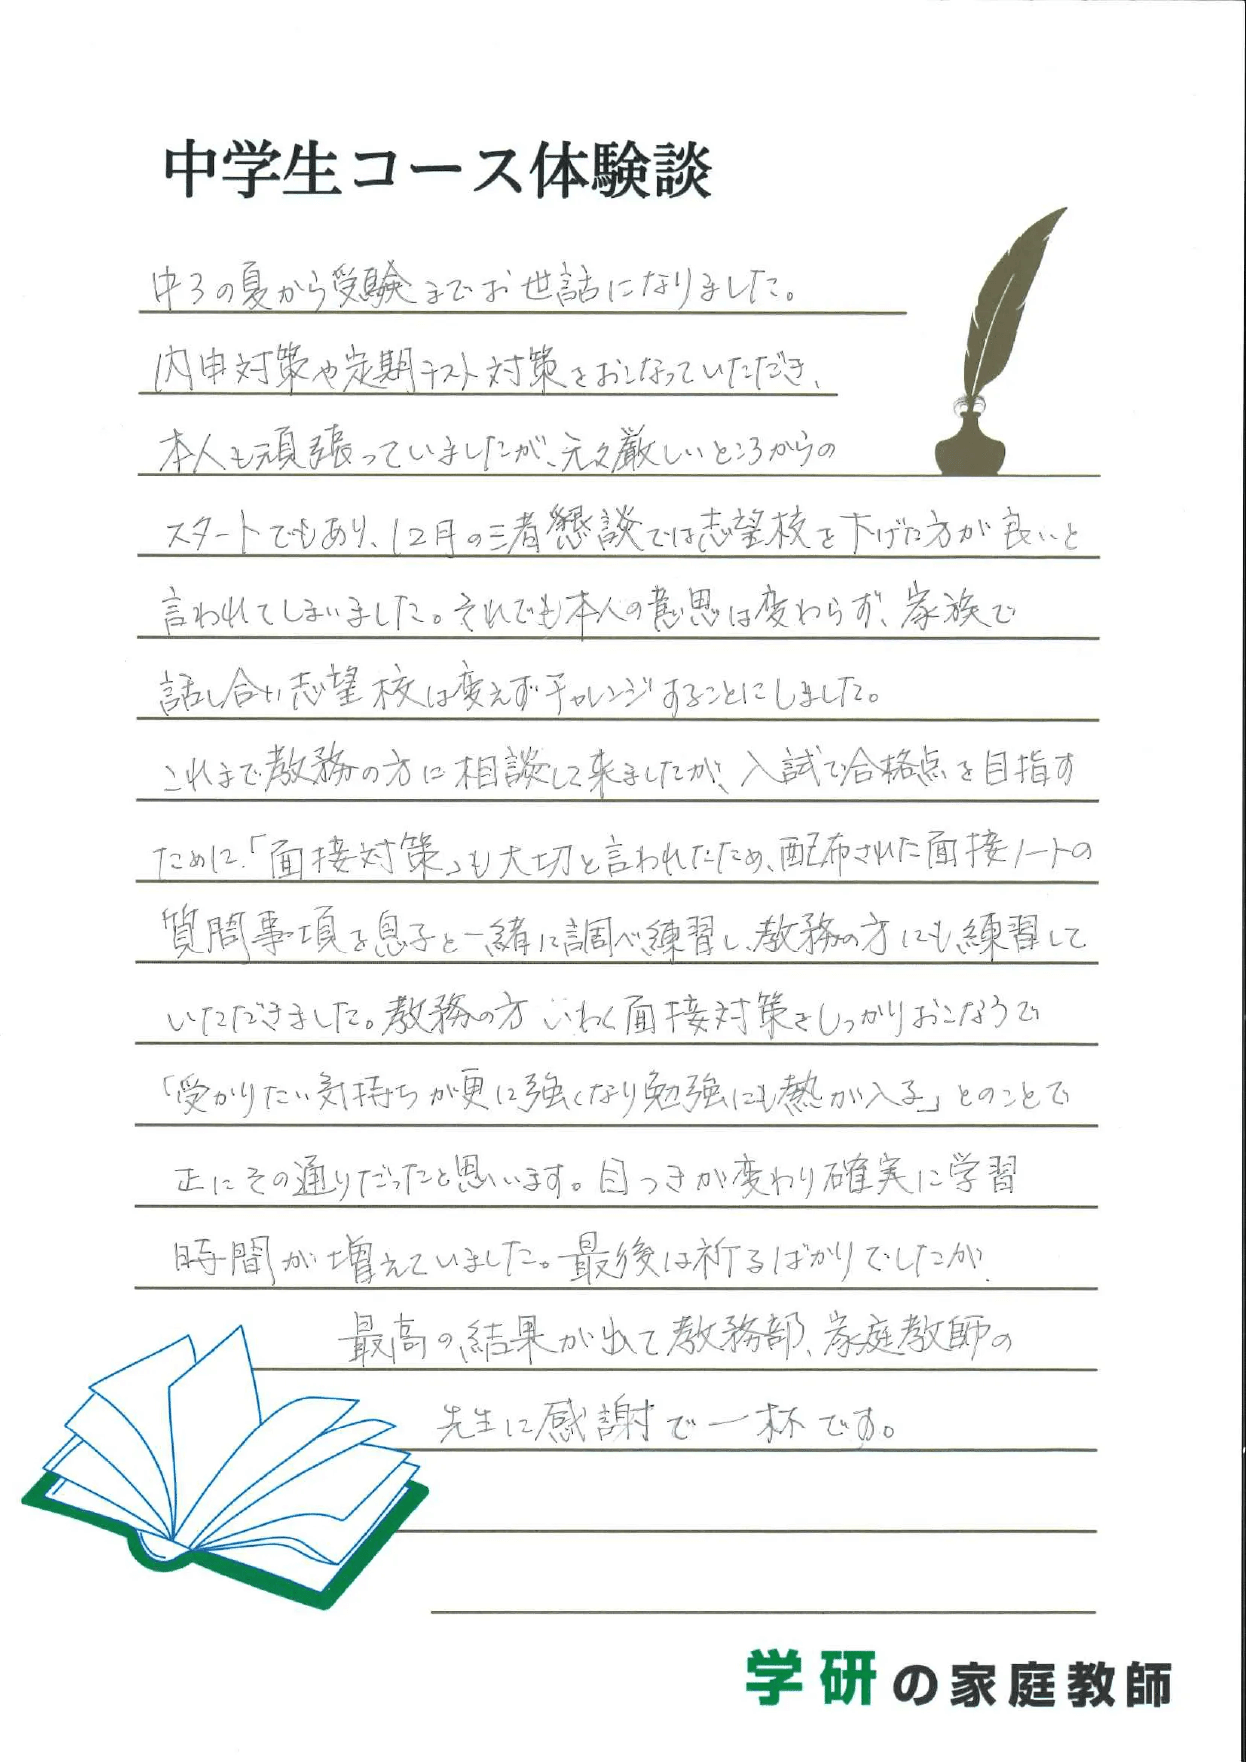 中学生コース体験談
中3の夏から受験までお世話になりました。
内申対策や定期テスト対策をおこなっていただき、
本人も頑張っていましたが、元々厳しいところからの
スタートでもあり、12月の三者懇談では志望校を下げた方が良いと
言われてしまいました。それでも本人の意思は変わらず、家族で
話し合い志望校は変えずチャレンジすることにしました。
これまで教務の方に相談して来ましたが、入試で合格点を目指す
ために、「面接対策」も大切と言われたため、配布された面接ノートの
質問事項を息子と一緒に調べ練習し、教務の方にも練習して
いただきました。教務の方いわく面接対策をしっかりおこなうで
「受かりたい気持ちが更に強くなり勉強にも熱が入る」とのことで
正にその通りだったと思います。目つきが変わり確実に学習
時間が増えていました。最後は祈るばかりでしたが、
最高の結果が出て教務部、家庭教師の
先生に感謝で一杯です。
学研の家庭教師